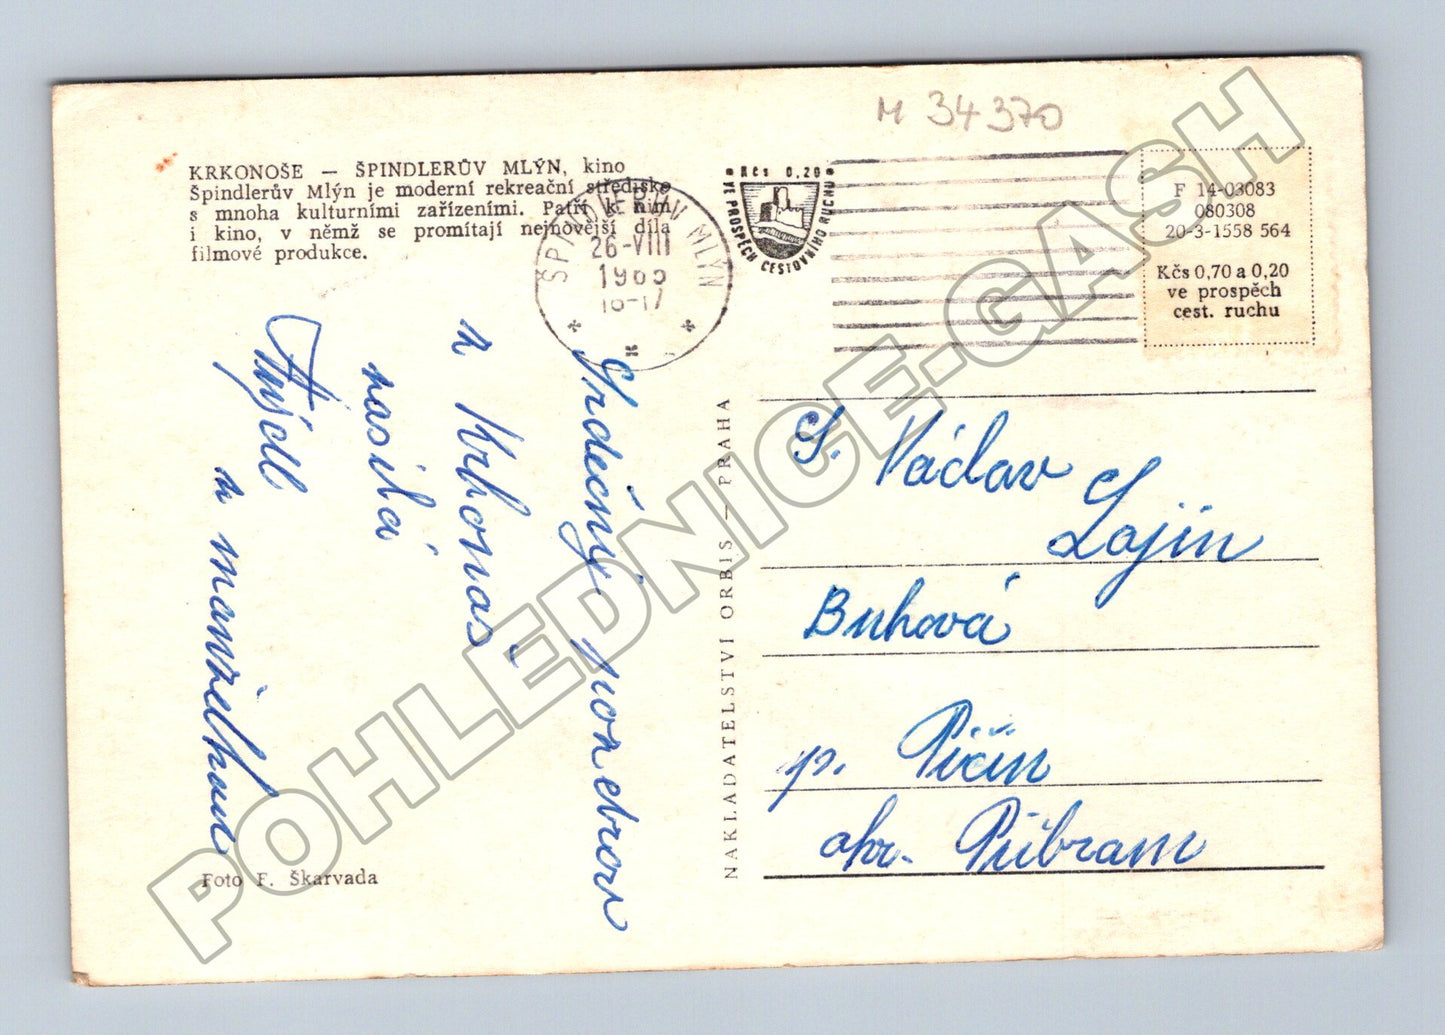 M 34370
KRKONOŠE — ŠPINDLERŮV MLÝN, kino
Špindlerův Mlýn je moderní rekreační středisko
s mnoha kulturními zařízeními. Patří k nim
i kino, v němž se promítají nejnovější díla
filmové produkce.
ŠPINDLERŮV MLÝN
26-VIII
1965
16-17
Kčs 0,20
VE PROSPĚCH CESTOVNÍHO RUCHU
F 14-03083
080308
20-3-1558 564
Kčs 0,70 a 0,20
ve prospěch
cest. ruchu
Srdečný pozdrav
z Krkonoš
zasílá
s manželkou
Foto F. Škarvada
NAKLADATELSTVÍ ORBIS — PRAHA
S. Václav
Lojín
Buková
p. Pičín
okr. Příbram
POHLEDNICE-GASH